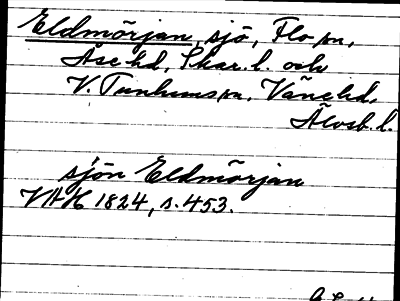 Eldmörjan, sjö, Flo sn,
Åse hd, Skar. l. och
V. Tunhems sn, Väne hd,
Älvsb. l.
sjön Eldmörjan
VAH 1824, s. 453.